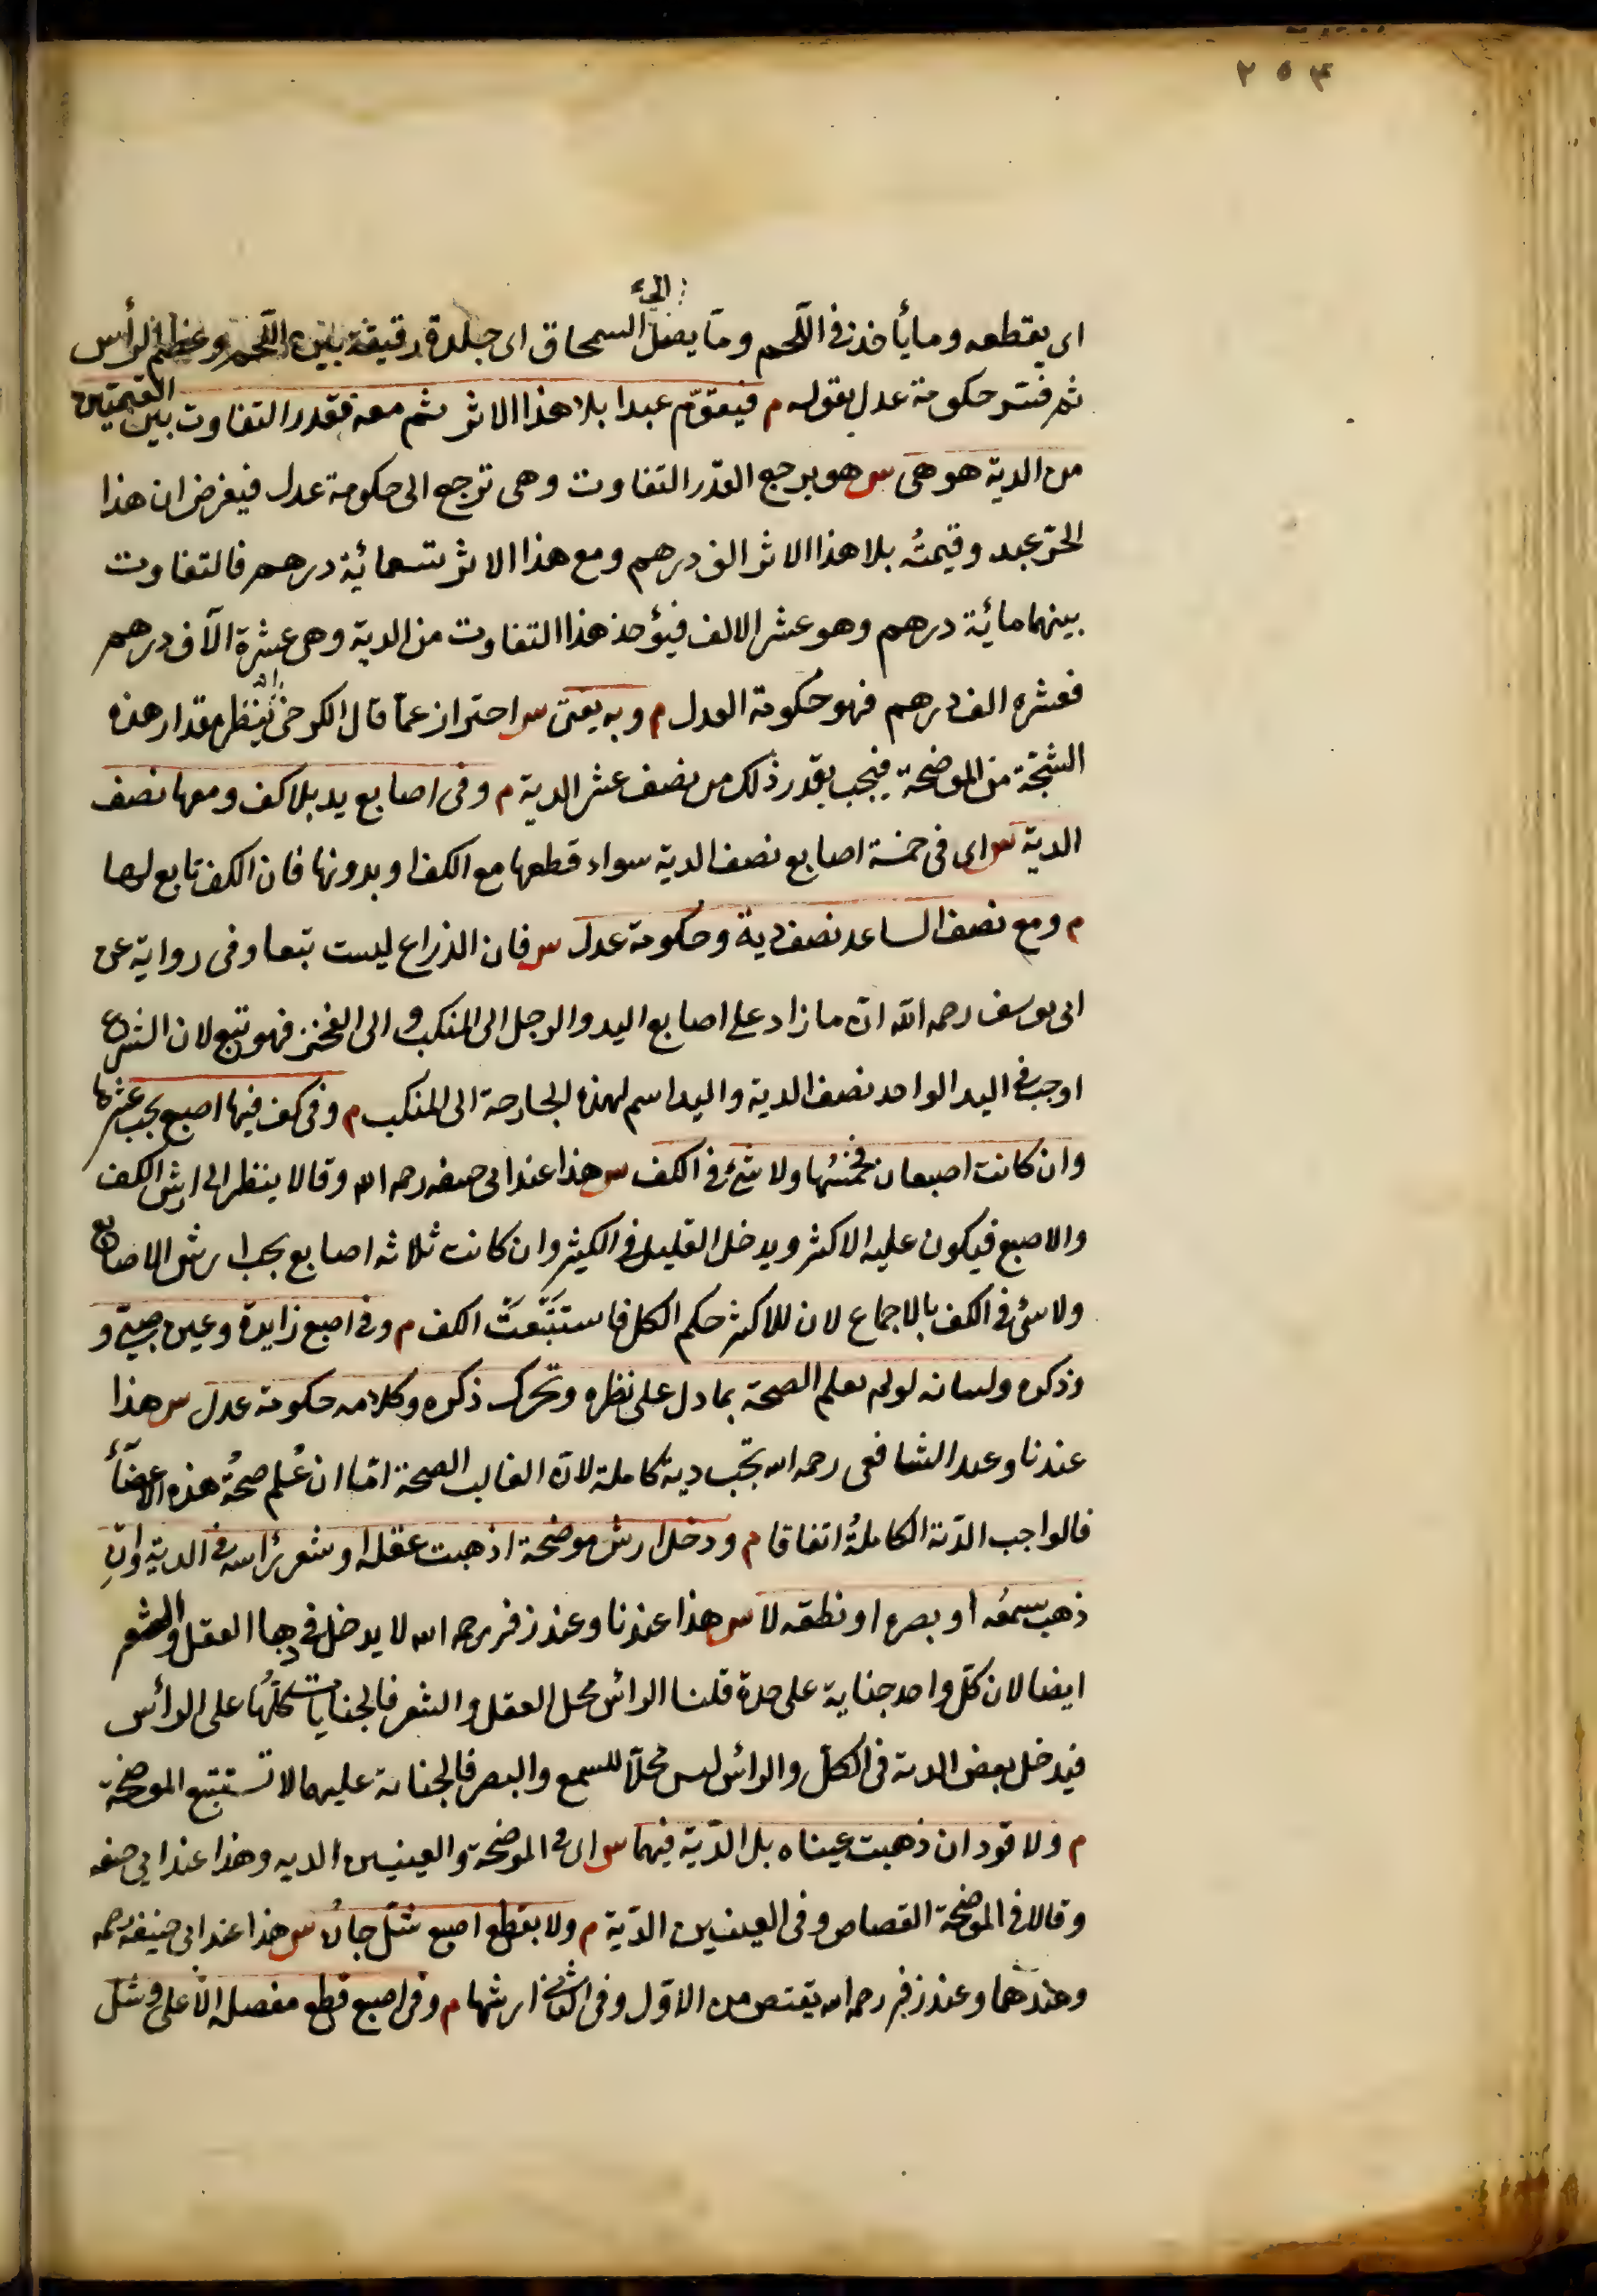 ٢٥٤
اى يقطعه وما يأخذ فى اللحم وما يصل الى السمحاق اى جلدة رقيقة بين اللحم وعظم الرأس
ثم فسّر حكومة عدل بقوله م فيقوّم عبدا بلا هذا الاثر ثم معه فقدر التفاوت بين القيمتين
من الدية هو هى س هو يرجع القدر التفاوت وهى ترجع الى حكومة عدل فيفرض ان هذا
الحرّ عبد وقيمتُه بلا هذا الاثر الف درهم ومع هذا الاثر تسعمائية درهم فالتفاوت
بينهما مائية درهم وهو عشر الالف فيؤخذ هذا التفاوت من الدية وهى عشرة الآف درهم
فعشره الف درهم فهو حكومة العدل م وبه يفتى س احتراز عمّا قال الكرخى انه ينظر مقدار هذه
الشجّة من الموضحة فيجب بقدر ذلك من نصف عشر الدية م وفى اصابع يد بلا كف ومعها نصف
الدية س اى فى خمسة اصابع نصف الدية سواء قطعها مع الكف او بدونها فان الكف تابع لها
م ومع نصف الساعد نصف دية وحكومة عدل س فان الذراع ليست تبعا وفى رواية عن
ابى يوسف رحمه الله انّ ما زاد على اصابع اليد والرجل الى المنكب والى الفخذ فهو تبع لان الشرع
اوجب فى اليد الواحد نصف الدية واليد اسم لهذه الجارحة الى المنكب م وفى كف فيها اصبع يجب عشرها
وان كانت اصبعان فخمسُها ولا شئ فى الكف س هذا عند ابى حنيفه رحمه الله وقالا ينظر الى ارش الكف
والاصبع فيكون عليه الاكثر ويدخل القليل فى الكثير وان كانت ثلاثه اصابع يجب ارش الاصابع
ولا شئ فى الكف بالاجماع لان للاكثر حكم الكل فاستتبَّعَتْ الكف م وفى اصبع زايدة وعين صبىّ و
وذكره ولسانه لو لم يعلم الصحة بما دل على نظره وتحرك ذكره وكلامه حكومة عدل س هذا
عندنا وعند الشافعى رحمه الله تجب دية كاملة لانّ الغالب الصحة امّا ان عُلم صحّةُ هذه الاعضآء
فالواجب الدّية الكاملةُ اتفاقا م ودخل ارش موضحة اذهبت عقله او شعر رأسه فى الدية وان
ذهب سمعُه او بصره او نطقه لا س هذا عندنا وعند زفر رحمه الله لا يدخل فى دها العقل والشعر
ايضا لان كلّ واحد جناية على حدة قلنا الرأس محل العقل والشعر فالجنايات كلّها على الرأس
فيدخل بعض الدية فى الكلّ والرأس ليس محلّا للسمع والبصر فالجناية عليهما لا تستتبع الموضحة
م ولا قود ان ذهبت عيناه بل الدّية فيهما س اى فى الموضحة والعينين الديه وهذا عند ابى حنيفه
وقالا فى الموضحة القصاص وفى العينين الدّية م ولا بقطع اصبع شلّ جاره س هذا عند ابى حنيفه رحمه
وعندهما وعند زفر رحمه الله يقتص من الاوّل وفى الثانى ارشها م وفى اصبع قطع مفصله الاعلى وشل